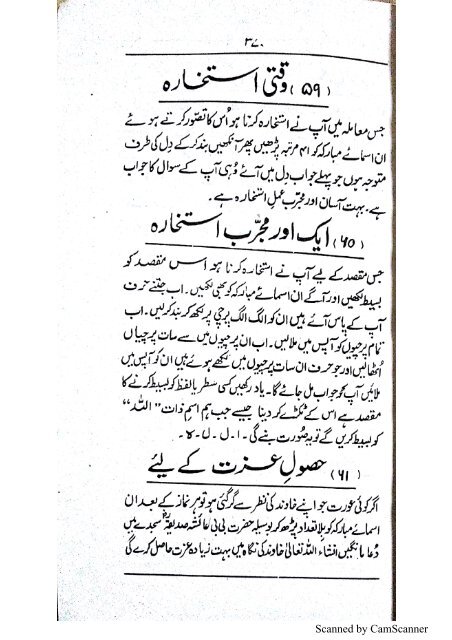 ۳۷۰
(۵۹) وقتی استخارہ
جس معاملہ میں آپ نے استخارہ کرنا ہو اُس کا تصوّر کرتے ہوئے
ان اسمائے مبارکہ کو ۴۱ مرتبہ پڑھیں پھر آنکھیں بند کر کے دِل کی طرف
متوجہ ہوں جو پہلے جواب دِل میں آئے وُہی آپ کے سوال کا جواب
ہے۔ بہت آسان اور مجرّب عمل استخارہ ہے۔
(۶۰) ایک اور مجرّب استخارہ
جس مقصد کے لیے آپ نے استخارہ کرنا ہو اس مقصد کو
بسیط لکھیں اور آگے ان اسمائے مبارکہ کو بھی لکھیں۔ اب جتنے حرف
آپ کے پاس آئے ہیں ان کو الگ الگ پرچی پر لکھ کر بند کرلیں۔ اب
تمام پرچیوں کو آپس میں ملائیں۔ اب ان پرچیوں میں سے سات پرچیاں
اُٹھالیں اور جو حرف ان سات پرچیوں میں لکھے ہوئے ہیں ان کو آپس میں
ملائیں آپ کو جواب مل جائے گا۔ یاد رکھیں کسی سطر یا لفظ کو بسیط کرنے کا
مقصد ہے اس کے ٹکڑے کر دینا جیسے جب ہم اسم ذات "اللہ"
کو بسیط کریں گے تو یہ صُورت بنے گی۔ ا۔ ل۔ ل۔ ہ۔
(۶۱) حصولِ عزت کے لیئے
اگر کوئی عورت جو اپنے خاوند کی نظر سے گر گئی ہو تو ہر نماز کے بعد ان
اسمائے مبارکہ کو بلا تعداد پڑھ کر بوسیلہ حضرت بی بی عائشہ صدیقہؓ سجدے میں
دُعا مانگیں انشاء اللہ تعالیٰ خاوند کی نگاہ میں بہت زیادہ عزت حاصل کرے گی
Scanned by CamScanner